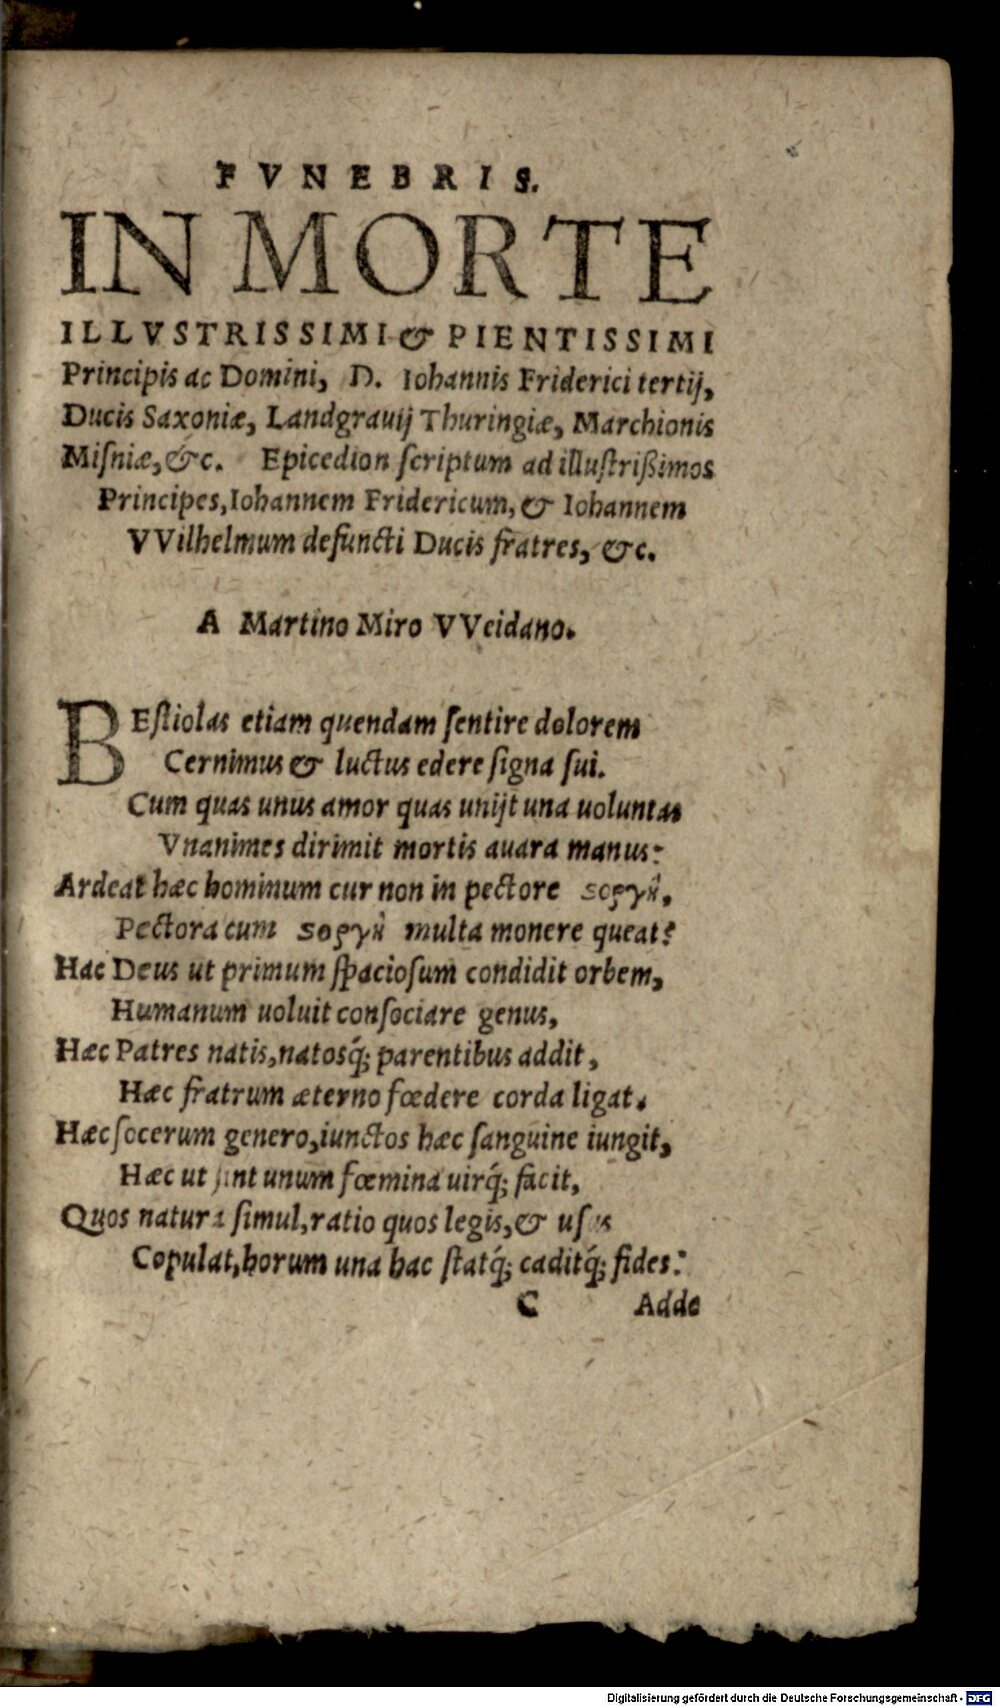 FVNEBRIS.
IN MORTE
ILLVSTRISSIMI & PIENTISSIMI
Principis ac Domini, D. Iohannis Friderici tertij,
Ducis Saxoniæ, Landgrauij Thuringiæ, Marchionis
Miſniæ, &c. Epicedion ſcriptum ad illuſtrißimos
Principes, Iohannem Fridericum, & Iohannem
VVilhelmum defuncti Ducis fratres, &c.
A Martino Miro VVeidano.
BEſtiolas etiam quendam ſentire dolorem
Cernimus & luctus edere ſigna ſui.
Cum quas unus amor quas unijt una uoluntas
Vnanimes dirimit mortis auara manus:
Ardeat hæc hominum cur non in pectore σοργὴ,
Pectora cum σοργὴ multa monere queat?
Hac Deus ut primum ſpacioſum condidit orbem,
Humanum uoluit conſociare genus,
Hæc Patres natis, natosq́; parentibus addit,
Hæc fratrum æterno fœdere corda ligat.
Hæc ſocerum genero, iunctos hæc ſanguine iungit,
Hæc ut ſint unum fœmina uirq́; facit,
Quos natura ſimul, ratio quos legis, & uſus
Copulat, horum una hac ſtatq́; caditq́; fides:
C Adde
Digitalisierung gefördert durch die Deutsche Forschungsgemeinschaft - DFG